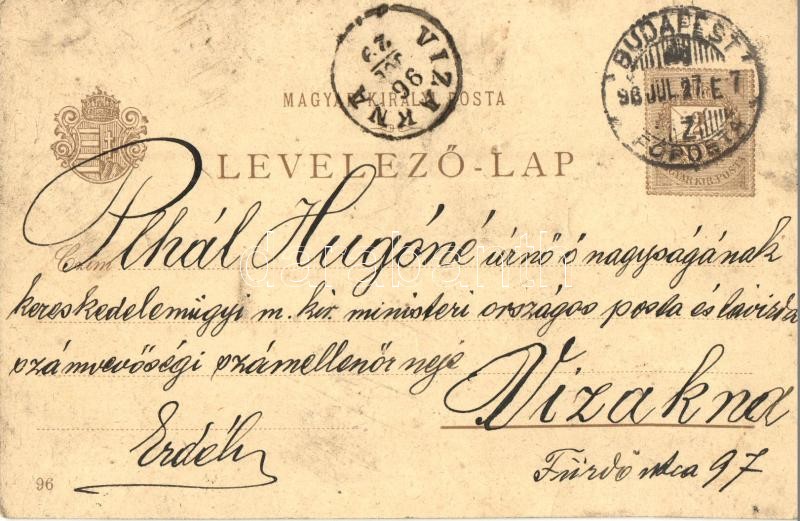 VIZAKNA
96
BUDAPEST
96 JUL. 27. E 7
FŐPOSTA
MAGYAR KIRÁLYI POSTA
MAGYAR KIR. POSTA
LEVELEZŐ-LAP
Czim
Plhál Hugóné úrnő ő nagyságának
kereskedelemügyi m. kir. ministeri országos posta és távirda
számvevőségi számellenőr neje
Vizakna
Erdély
Fürdő utca 97
96
darabanth